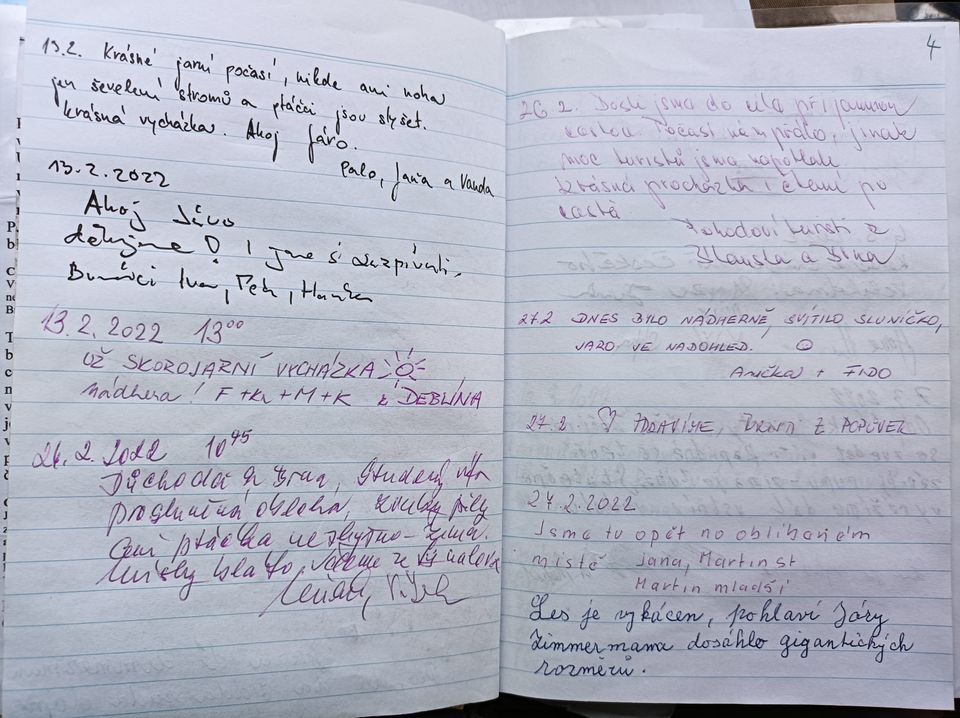 13.2. Krásné jarní počasí, nikde ani noha
jen ševelení stromů a ptáčci jsou slyšet.
krásná vycházka. Ahoj Járo.
Palo, Jaňa a Vanda
13.2.2022
Ahoj Járo
děkujeme! I jsme si zazpívali.
Iva, Petr, Hanka
13.2.2022 13⁰⁰
UŽ SKOROJARNÍ VYCHÁZKA
nádhera! F+Ka+M+K z DEBLÍNA
26.2.2022 10⁴⁵
Důchodci z Brna, studený
obloha, zvuky pily
ani ptáčka
4
26.2. Došli jsme do cíla příjemnou
cestou. Počasí nám přálo, jinak
moc turistů jsme nepotkali.
Krásná procházka i čtení po
cestě
Pohodoví turisti z
Blanska a Brna
27.2 DNES BYLO NÁDHERNĚ, SVÍTILO SLUNÍČKO,
JARO VE NADOHLED.
Anička + FIDO
27.2. ♡ ZDRAVÍME, Z POPŮVEK
27.2.2022
Jsme tu opět na oblíbeném
místě Jana, Martin st
Martin mladší
Les je vykácen, pohlaví Járy
Zimmermama dosáhlo gigantických
rozměrů.